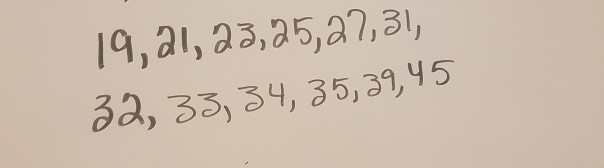 19, 21, 23, 25, 27, 31,
32, 33, 34, 35, 39, 45